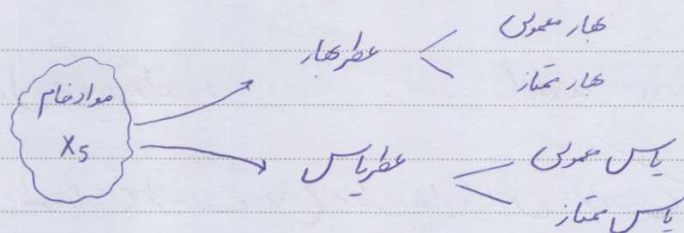 مواد خام
X5
عطر بهار
بهار معمولی
بهار ممتاز
عطر یاس
یاس معمولی
یاس ممتاز